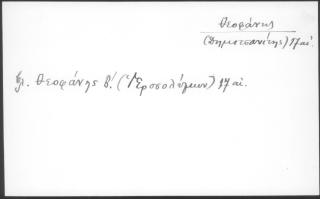 Θεοφάνης
(Δημητσανίτης) 17 αἰ.
βλ. Θεοφάνης β΄. (Ἱεροσολύμων) 17 αἰ.